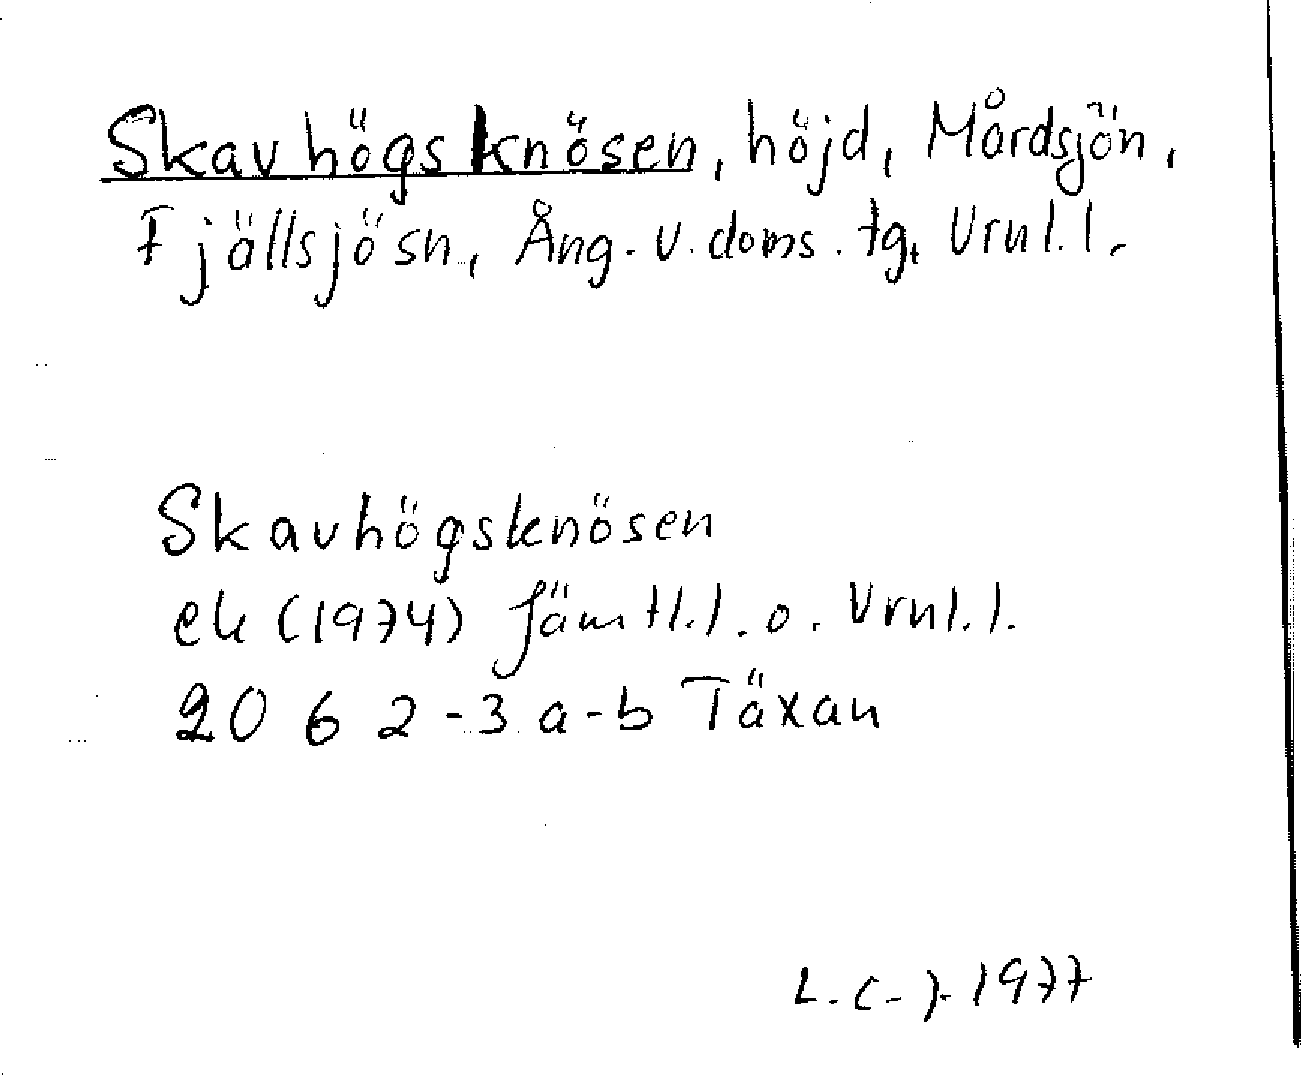 Skavhögsknösen, höjd, Mårdsjön,
Fjällsjösn, Ång. v. doms. tg, Vrnl. l.
Skavhögsknösen
ek (1974) Jämtl. l. o. Vrnl. l.
20 6 2-3 a-b Täxan
L. C-J. 1977